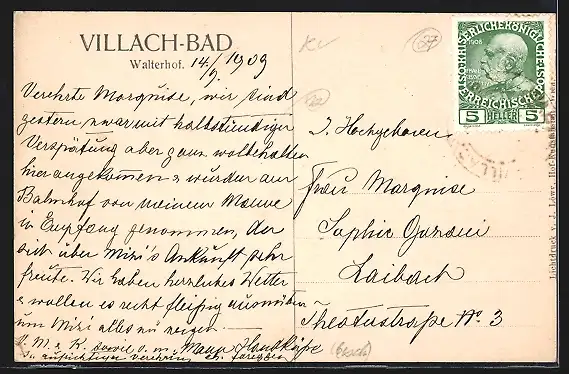 VILLACH-BAD
Walterhof. 14./9. 1909
Verehrte Marquise, wir sind
gestern zwar mit halbstündiger
Verspätung aber ganz wolbehalten
hier angekommen & wurden am
Bahnhof von meinem Manne
in Empfang genommen, der
sich über Mizi's Ankunft sehr
freute. Wir haben herrliches Wetter
& wollen es recht fleißig ausnützen
um Mizi alles zu zeigen.
M. & K. sowie v. m. Mann Handküße
aufrichtiger Verehrung
I. Hochgeboren
Frau Marquise
Sophie Gozani
Laibach
Theatustraße No. 3
KAISERLICHE KÖNIGLICHE
ÖSTERREICHISCHE POST
1908
5 HELLER 5
VILLACH
Lichtdruck v. J. Löwy, Hof-